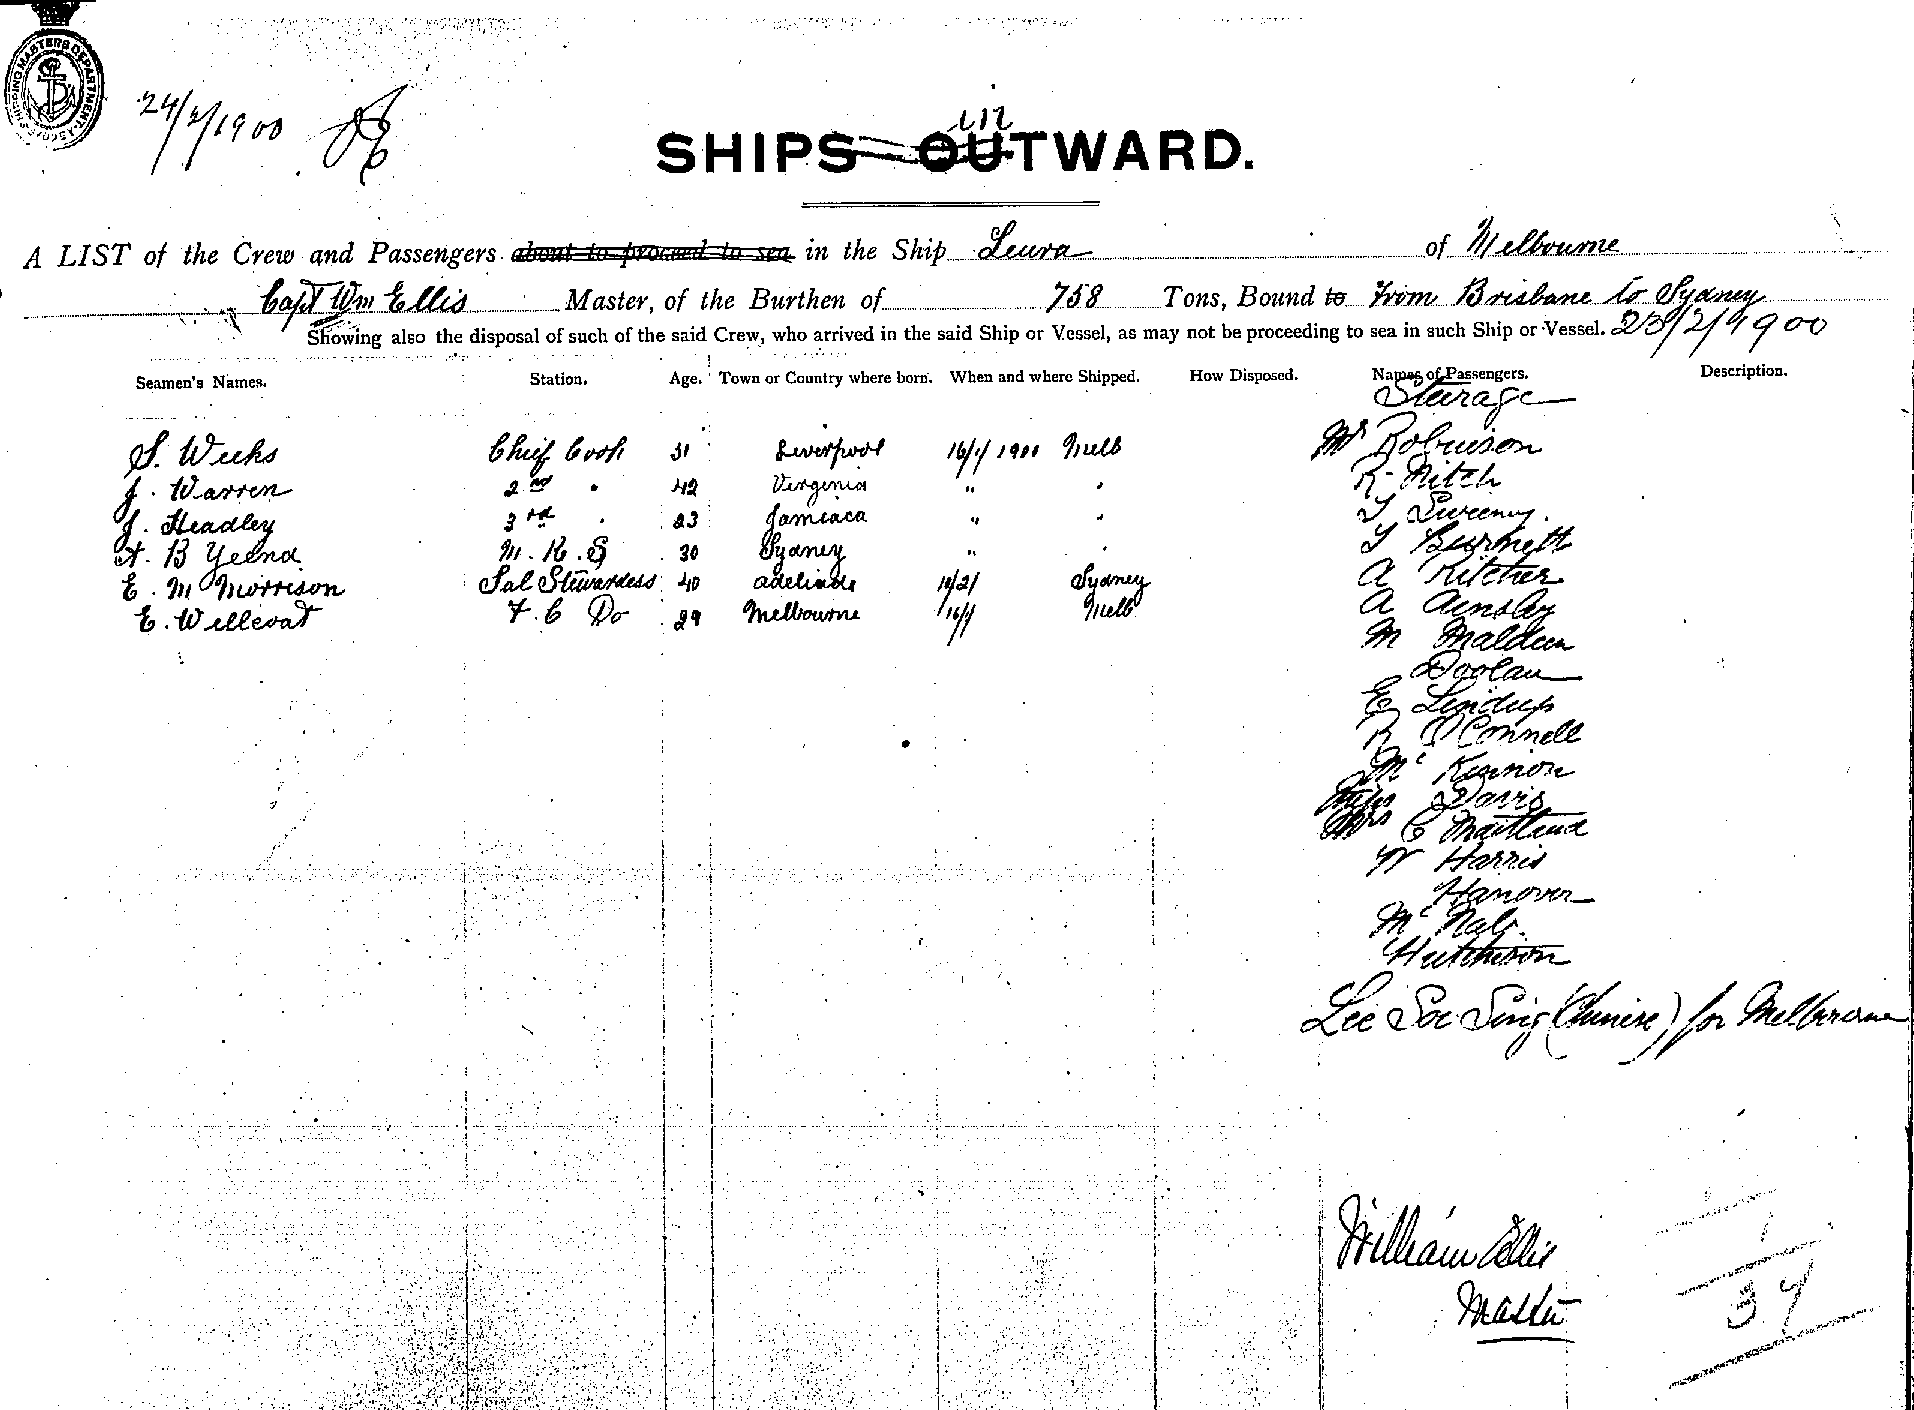 SHIPPING MASTERS DEPARTMENT
24/2/1900
in
SHIPS OUTWARD.
A LIST of the Crew and Passengers about to proceed to sea in the Ship Leura of Melbourne
Capt Wm Ellis Master, of the Burthen of 758 Tons, Bound to From Brisbane to Sydney
Showing also the disposal of such of the said Crew, who arrived in the said Ship or Vessel, as may not be proceeding to sea in such Ship or Vessel. 23/2/1900
Seamen's Names. Station. Age. Town or Country where born. When and where Shipped. How Disposed. Names of Passengers. Description.
Steerage
S. Weeks Chief Cook 31 Liverpool 16/1/1900 Melb Mr Robinson
J. Warren 2nd " 42 Virginia " " R. Nitch
J. Headley 3rd " 23 Jamiaca " " T Sweeney.
A. B Yeend M. R. S 30 Sydney " " T Burnett
E. M Morrison Sal Stewardess 40 adeliade 10/2/ Sydney A Kitcher
E. Willevat F. C Do 29 Melbourne 16/1 Melb A Ainsley
M Maldeen
Doolan
E Lindup
R O'Connell
Mc Kinnon
Davis
Mrs C Maitland
W Harris
Hanover
Mc Nab.
Hutchison
Lee Soe Sing (Chinese) for Melbourne
William Ellis
Master
34